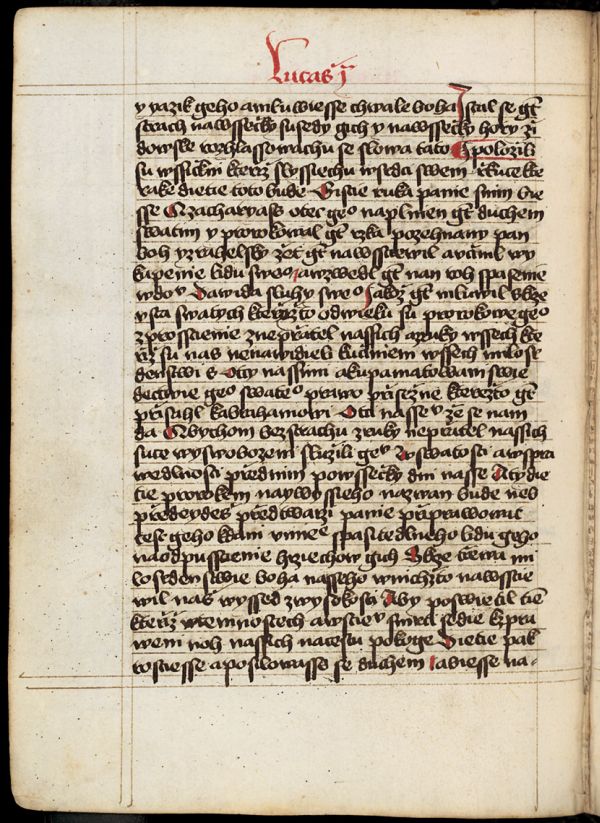 Lucas j
y yazik geho a mluwiesse chwale boha J stal se gt
strach nawssečky susedy gich y nawssečky hory ži
dowske rozhlassowachu se slowa tato A polozili
su wssickni kteřiž slyssiechu wsrdci swem řkuce kte
rake dietie toto bude Bisie ruka panie snim bie
sse A zacharyass otec geo naplnien gt duchem
swatim y prorokowal gt řka pozehnany pan
boh yzrahelsky žet gt nawsstiewil a včinil wy
kupenie lidu sweo a wzwedl gt nam roh spasenie
wdou Dawida sluhy sweo Jakž gt mluwil skrze
vsta swatych kteřižto odwieku su prorokowe geo
zprosstienie znepřatel nassich a zruky wssech kte
řiž su nas nenawidieli kučiniem wssech milosr
denstwi s otcy nassimi a kupamatowani swie
dectwie geo swateo prawo přisežne kterežto gt
přisahl kabrahamowi Otci nasseu že se nam
da Abychom bez strachu zruky nepřatel nassich
suce wyswobozeni služili geu W swatosti a wspra
wedlnosti před nim powssečky dni nasse A ty die
tie prorokem naywyssieho nazwan bude neb
předeydes před twarzi panie připrawowat
cest geho kdani vmne spasitedlneho lidu geho
na odpusstienie hrziechow gich Skrze střewa mi
losrdenstwie boha nasseho wnichžto nawsstie
wil nas wyssed zwysokosti Aby poswietil tiem
kteřiž wtemnostech a wstieu smrti sedie kzpra
weni noh nassich na cestu pokoge Dietie pak
rostiesse a posilowasse se duchem a biesse na-